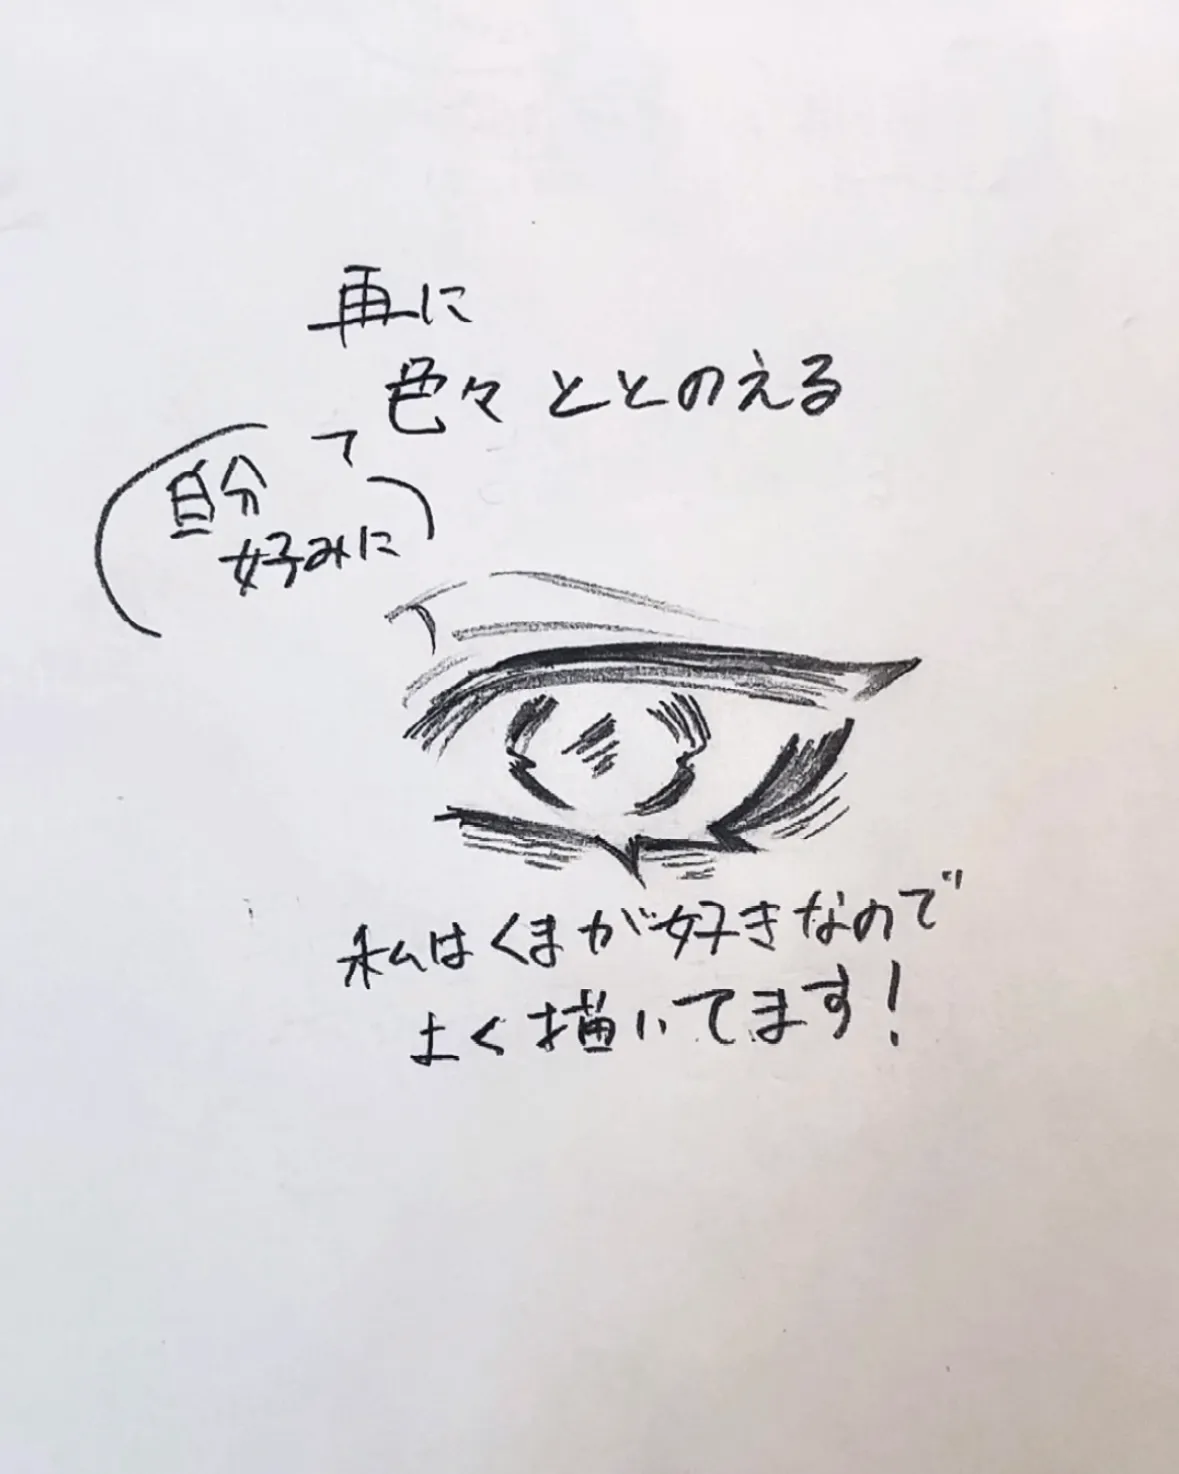 再に
色々ととのえる
て
自分
好みに
私はくまが好きなので
よく描いてます!